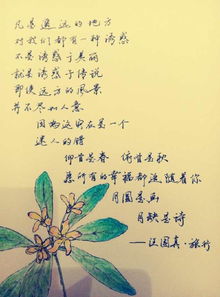 凡是遥远的地方
对我们都有一种诱惑
不是诱惑于美丽
就是诱惑于传说
即使远方的风景
并不尽如人意
因为这实在是一个
迷人的错
仰首是春 俯首是秋
愿所有的幸福都追随着你
月圆是画
月缺是诗
——汪国真·旅行